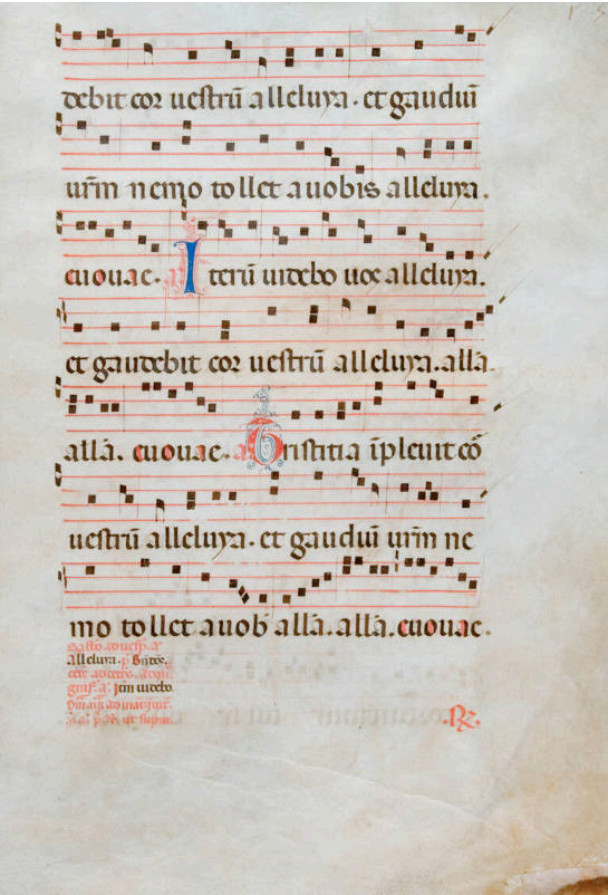 debit cor uestrū alleluya. et gaudiū
urm̄ nemo tollet auobis alleluya.
euouae. a Iterū uidebo uos alleluya.
et gaudebit cor uestrū alleluya. allā.
allā. euouae. a Tristitia īpleuit cō
uestrū alleluya. et gaudiū urm̄ ne
mo tollet auob allā. allā. euouae.
alleluya. p̄
a. Itm̄ uidebo
R̄.